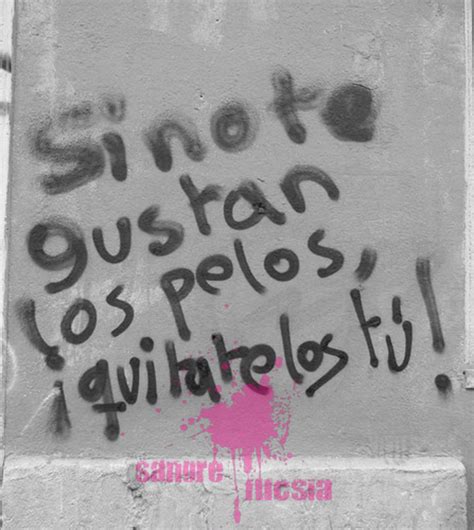 Si no te
gustan
los pelos,
¡quitatelos tú!
sangre
fucsia